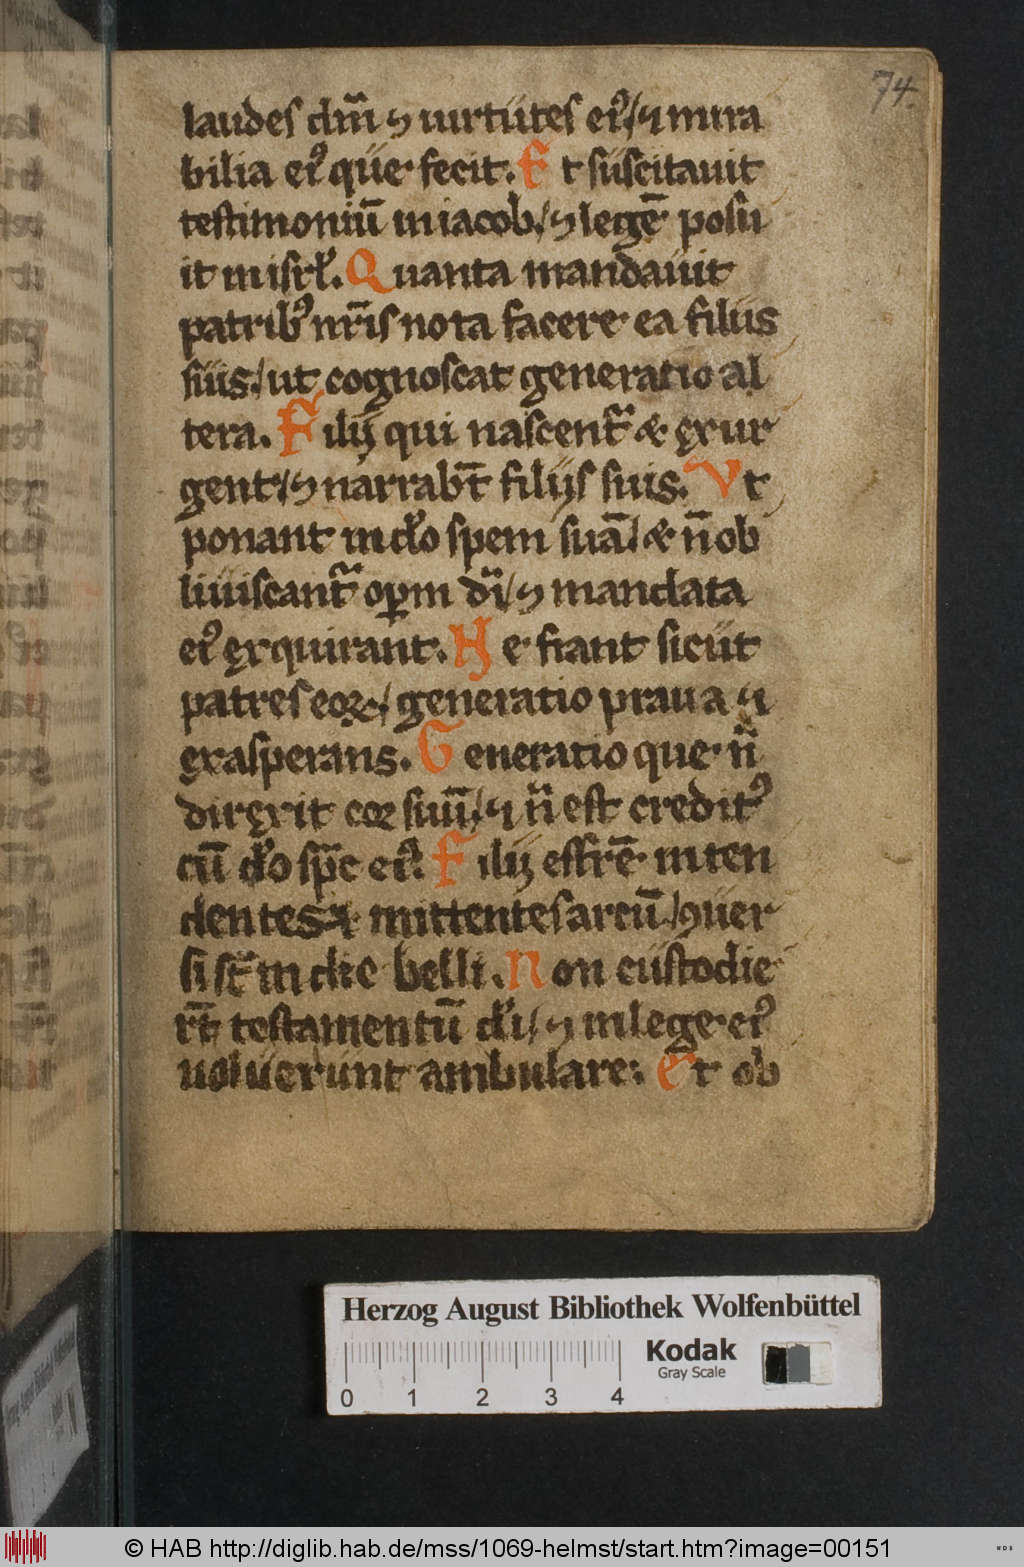 74.
laudes dm̄i ⁊ uirtutes eiꝰ / ⁊ mira
bilia eiꝰ que fecit. Et suscitauit
testimoniū in iacob / ⁊ legē posu
it in isrl̄. Quanta mandauit
patribꝰ nr̄is nota facere ea filiis
suis / ut cognoscat generatio al
tera. Filij qui nascent᷑ & exur
gent / ⁊ narrabt̄ filijs suis. Vt
ponant in do̅ spem suā / & n̄ ob
liuiscant᷑ opꝝm di̅ / ⁊ mandata
eiꝰ exquirant. Ne fiant sicut
patres eoꝝ / generatio praua ⁊
exasperans. Generatio que n̄
direxit coꝛ suum̄ / ⁊ n̄ est creditꝰ
cū do̅ spc̄ eiꝰ. Filij effrē inten
dentes ⁊ mittentes arcū / ↄuer
si st̄ in die belli. Non custodie
rt̄ testamentū di̅ / ⁊ in lege eiꝰ
uoluerunt ambulare. Et ob
Herzog August Bibliothek Wolfenbüttel
Kodak
Gray Scale
0 1 2 3 4
© HAB http://diglib.hab.de/mss/1069-helmst/start.htm?image=00151